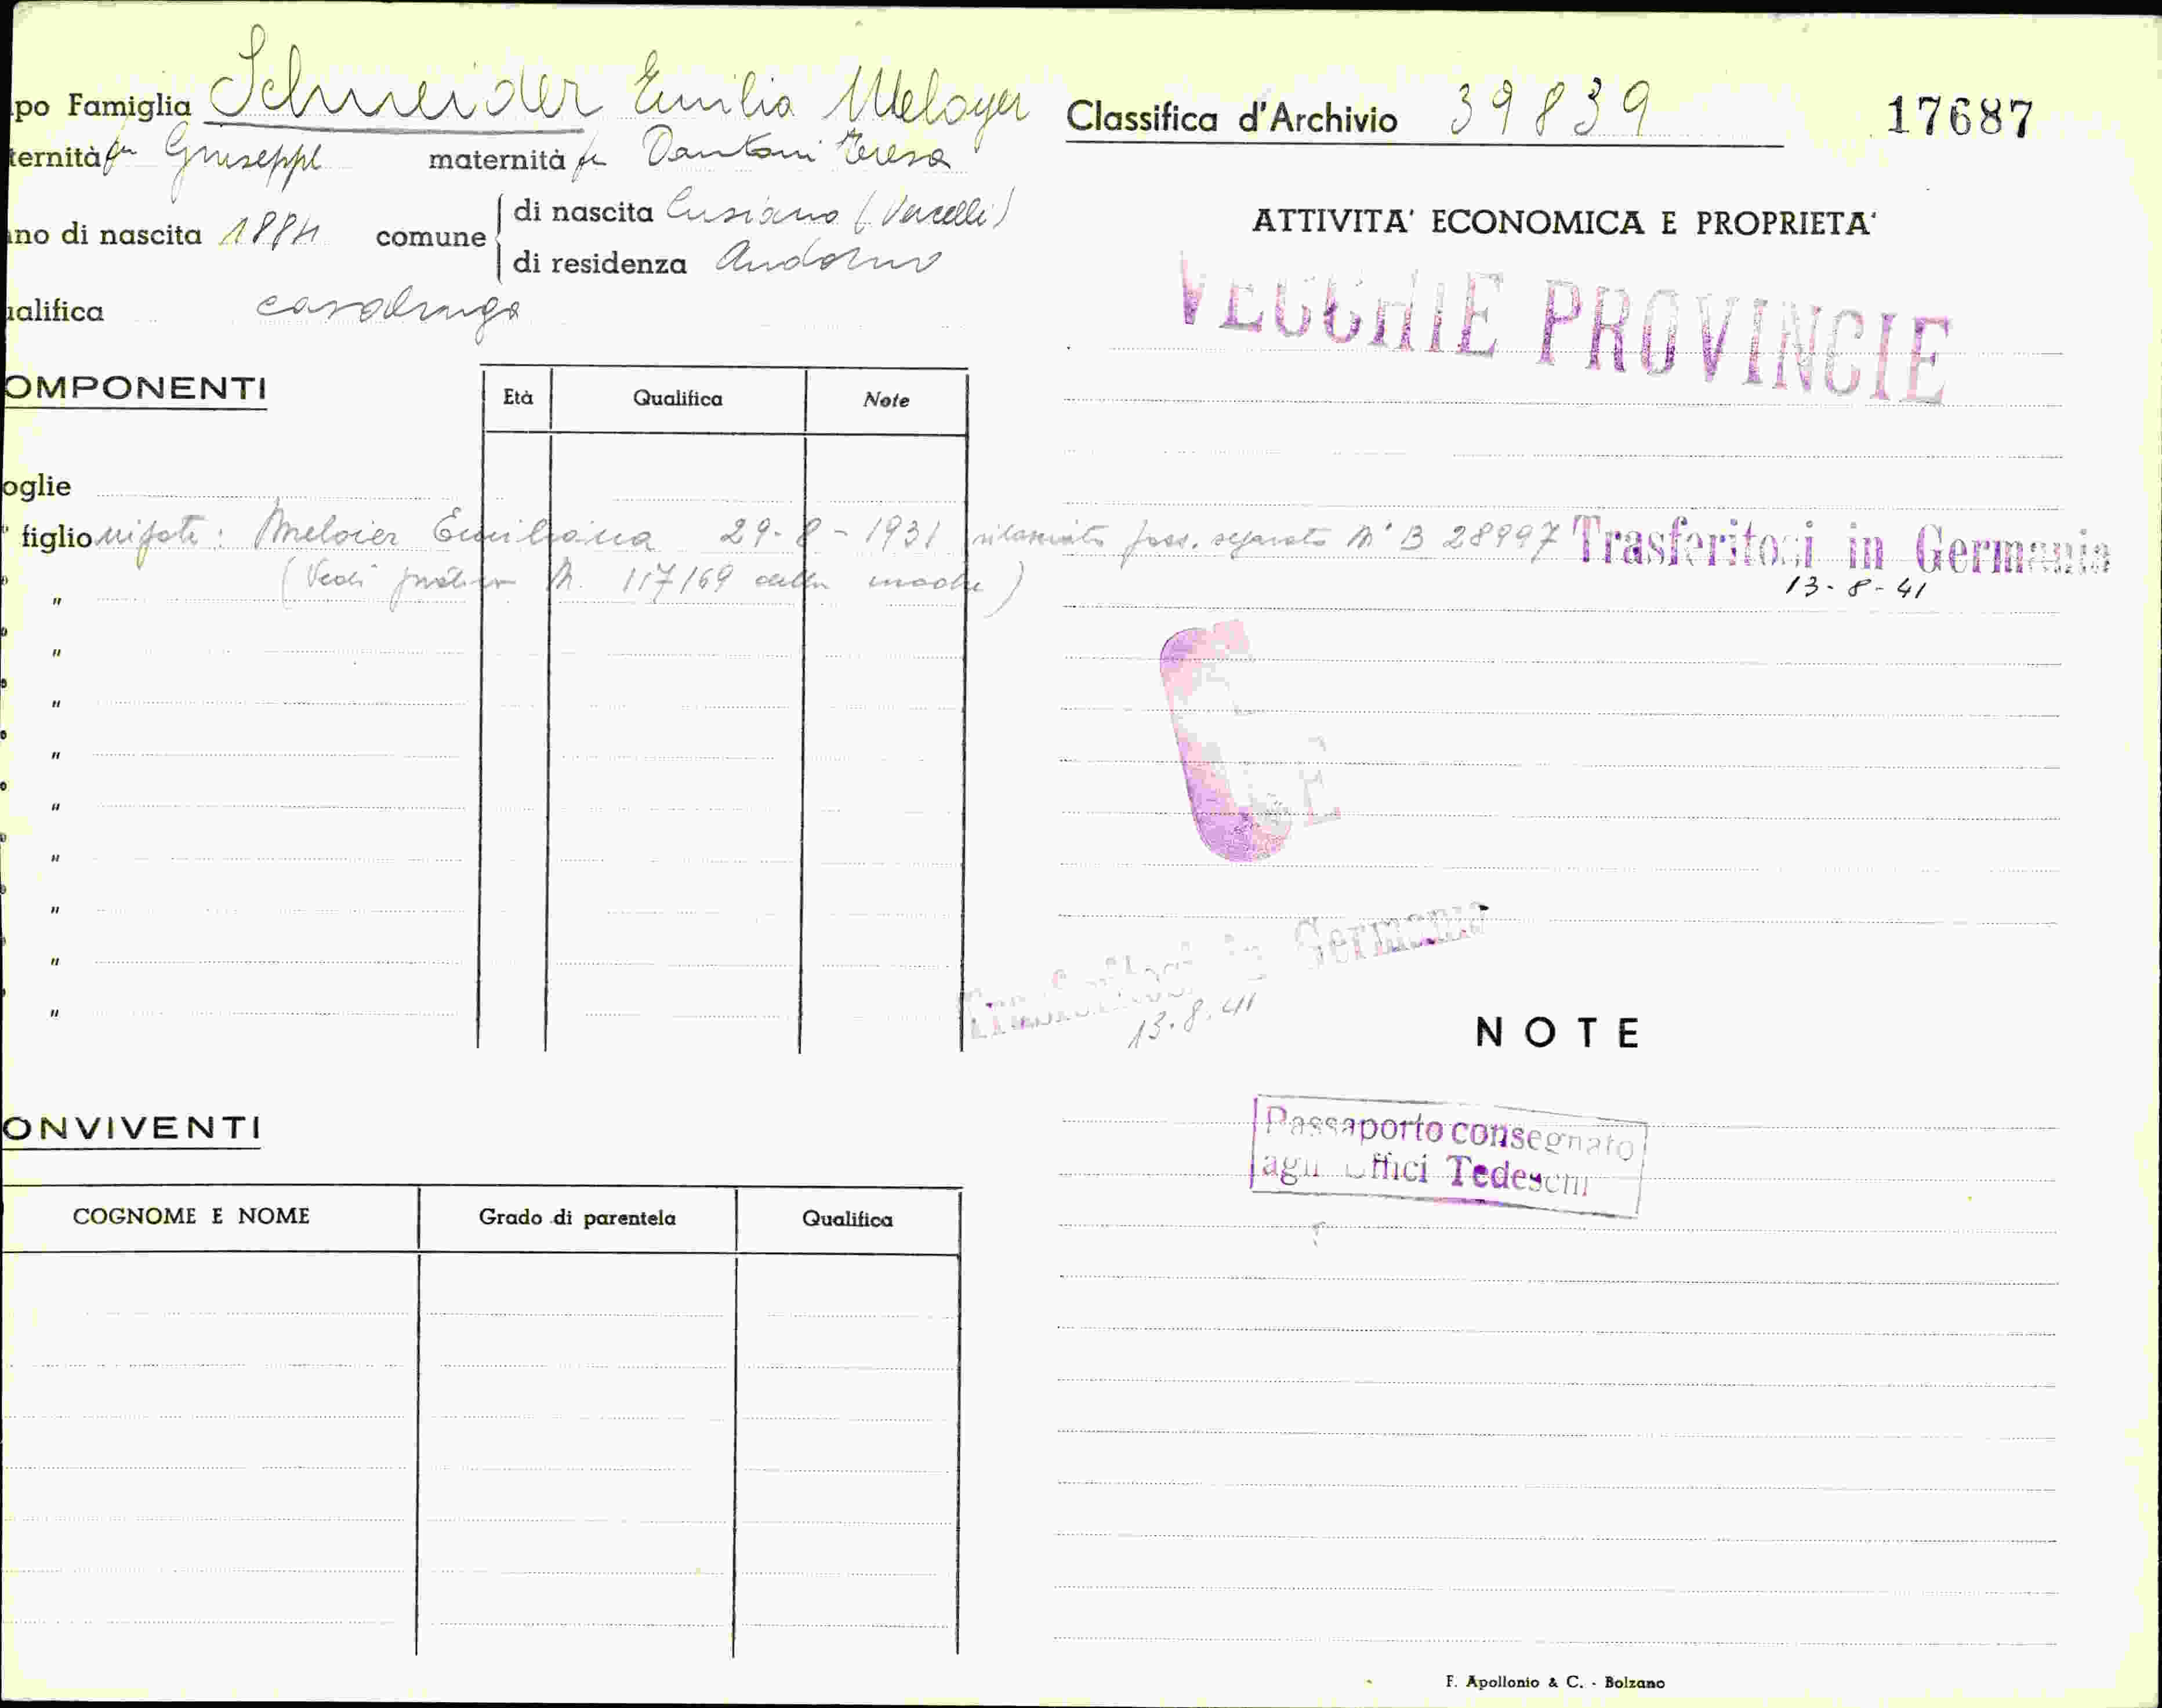 po Famiglia Schneider Emilia Meloyer
ternità fu Giuseppe maternità fu Dantoni Teresa
no di nascita 1884 comune
di nascita Cusiano (Vercelli)
di residenza Andorno
alifica casalinga
OMPONENTI
Età Qualifica Note
oglie
figlio nipote: Meloier Emiliana 29-8-1931 rilasciato pass. separato N° B 28997
(Vedi pratica N. 117/169 della madre)
"
"
"
"
"
"
"
"
"
ONVIVENTI
COGNOME E NOME Grado di parentela Qualifica
Classifica d'Archivio 39839 17687
ATTIVITA' ECONOMICA E PROPRIETA'
VECCHIE PROVINCIE
Trasferitosi in Germania
13-8-41
Trasferitosi in Germania
13.8.41
NOTE
Passaporto consegnato
agli Uffici Tedeschi
F. Apollonio & C. - Bolzano